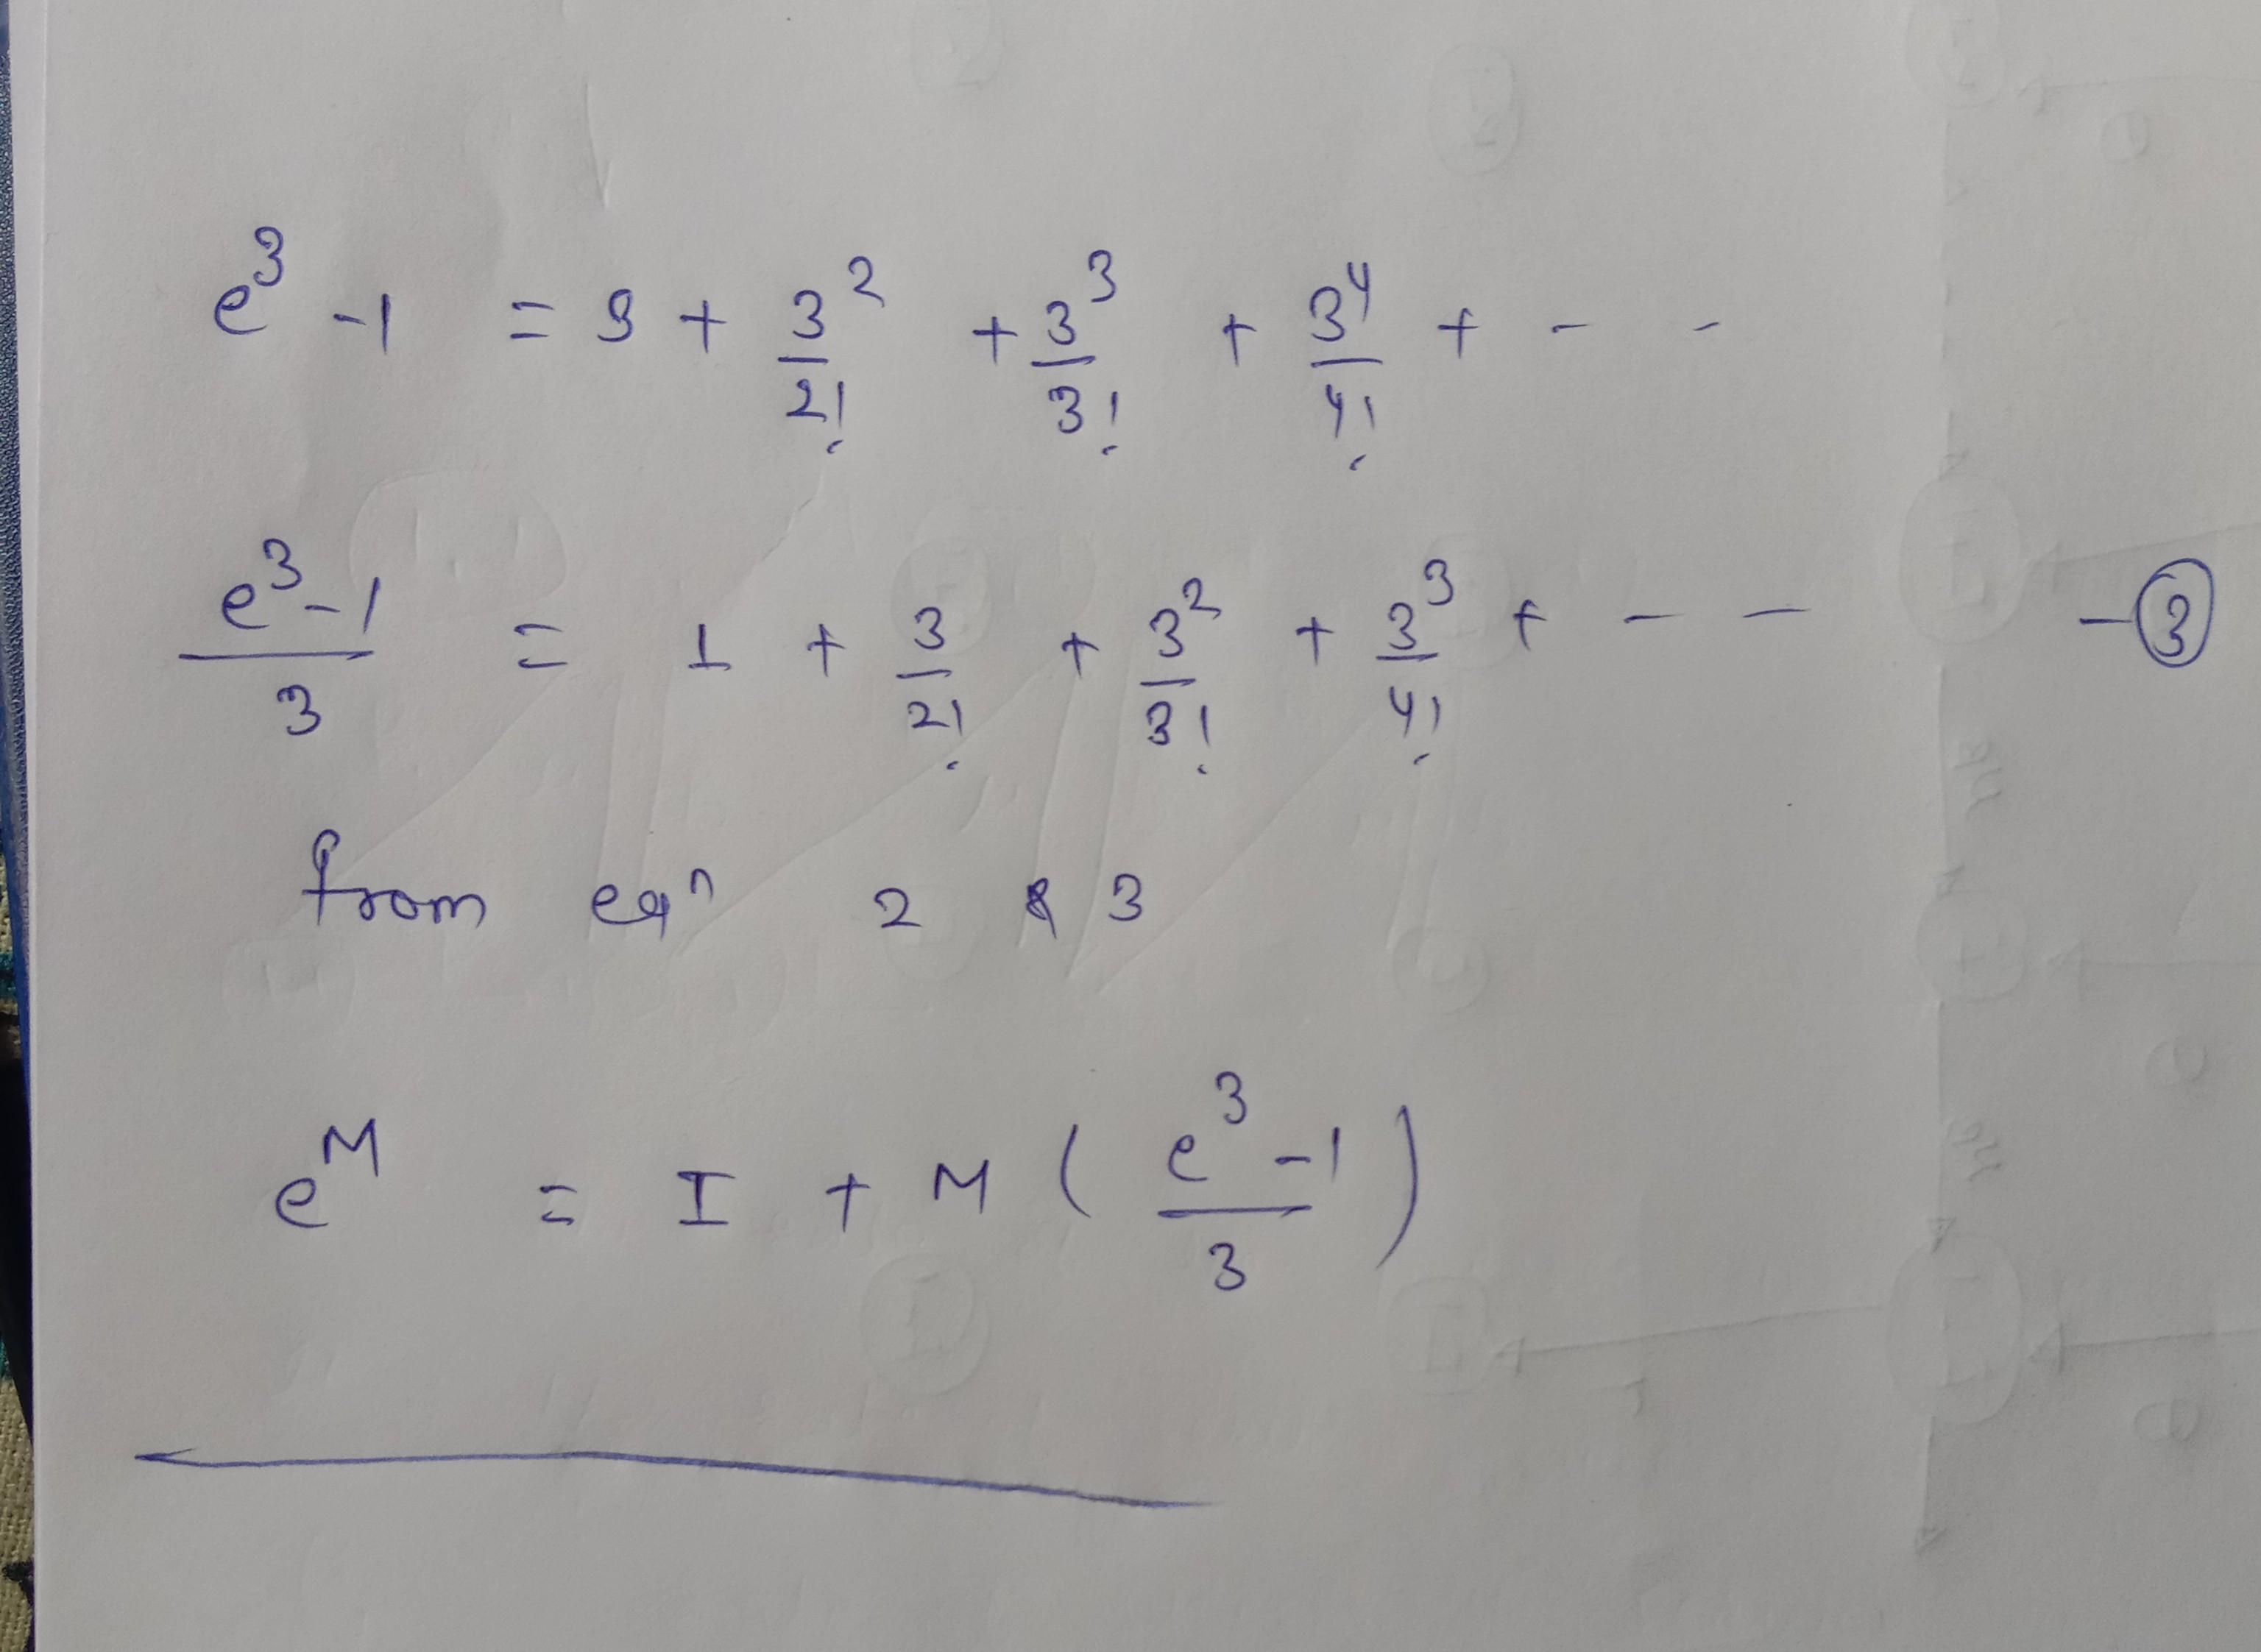 e³ - 1 = 3 + 3²/2! + 3³/3! + 3⁴/4! + - -
(e³ - 1)/3 = 1 + 3/2! + 3²/3! + 3³/4! + - - - ③
from eqⁿ 2 & 3
e^M = I + M ( (e³ - 1)/3 )